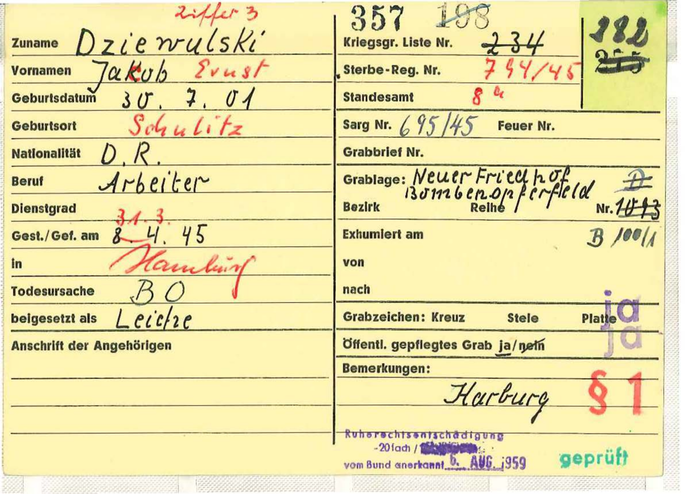 Ziffer 3
Zuname Dziewulski
Vornamen Jakob Ernst
Geburtsdatum 30. 7. 01
Geburtsort Schulitz
Nationalität D.R.
Beruf Arbeiter
Dienstgrad
31.3.
Gest./Gef. am 8. 4. 45
in Hamburg
Todesursache BO
beigesetzt als Leiche
Anschrift der Angehörigen
357 198
282
Kriegsgr. Liste Nr. 234
Sterbe-Reg. Nr. 794/45
Standesamt 8a
Sarg Nr. 695/45 Feuer Nr.
Grabbrief Nr.
Grablage: Neuer Friedhof
Bombenopferfeld
Bezirk Reihe Nr. 1093
Exhumiert am B 100/1
von
nach
ja
Grabzeichen: Kreuz Stele Platte
ja
Öffentl. gepflegtes Grab ja/nein
Bemerkungen:
Harburg
§ 1
Ruherechtsentschädigung
-20fach /
vom Bund anerkannt 6. AUG. 1959
geprüft